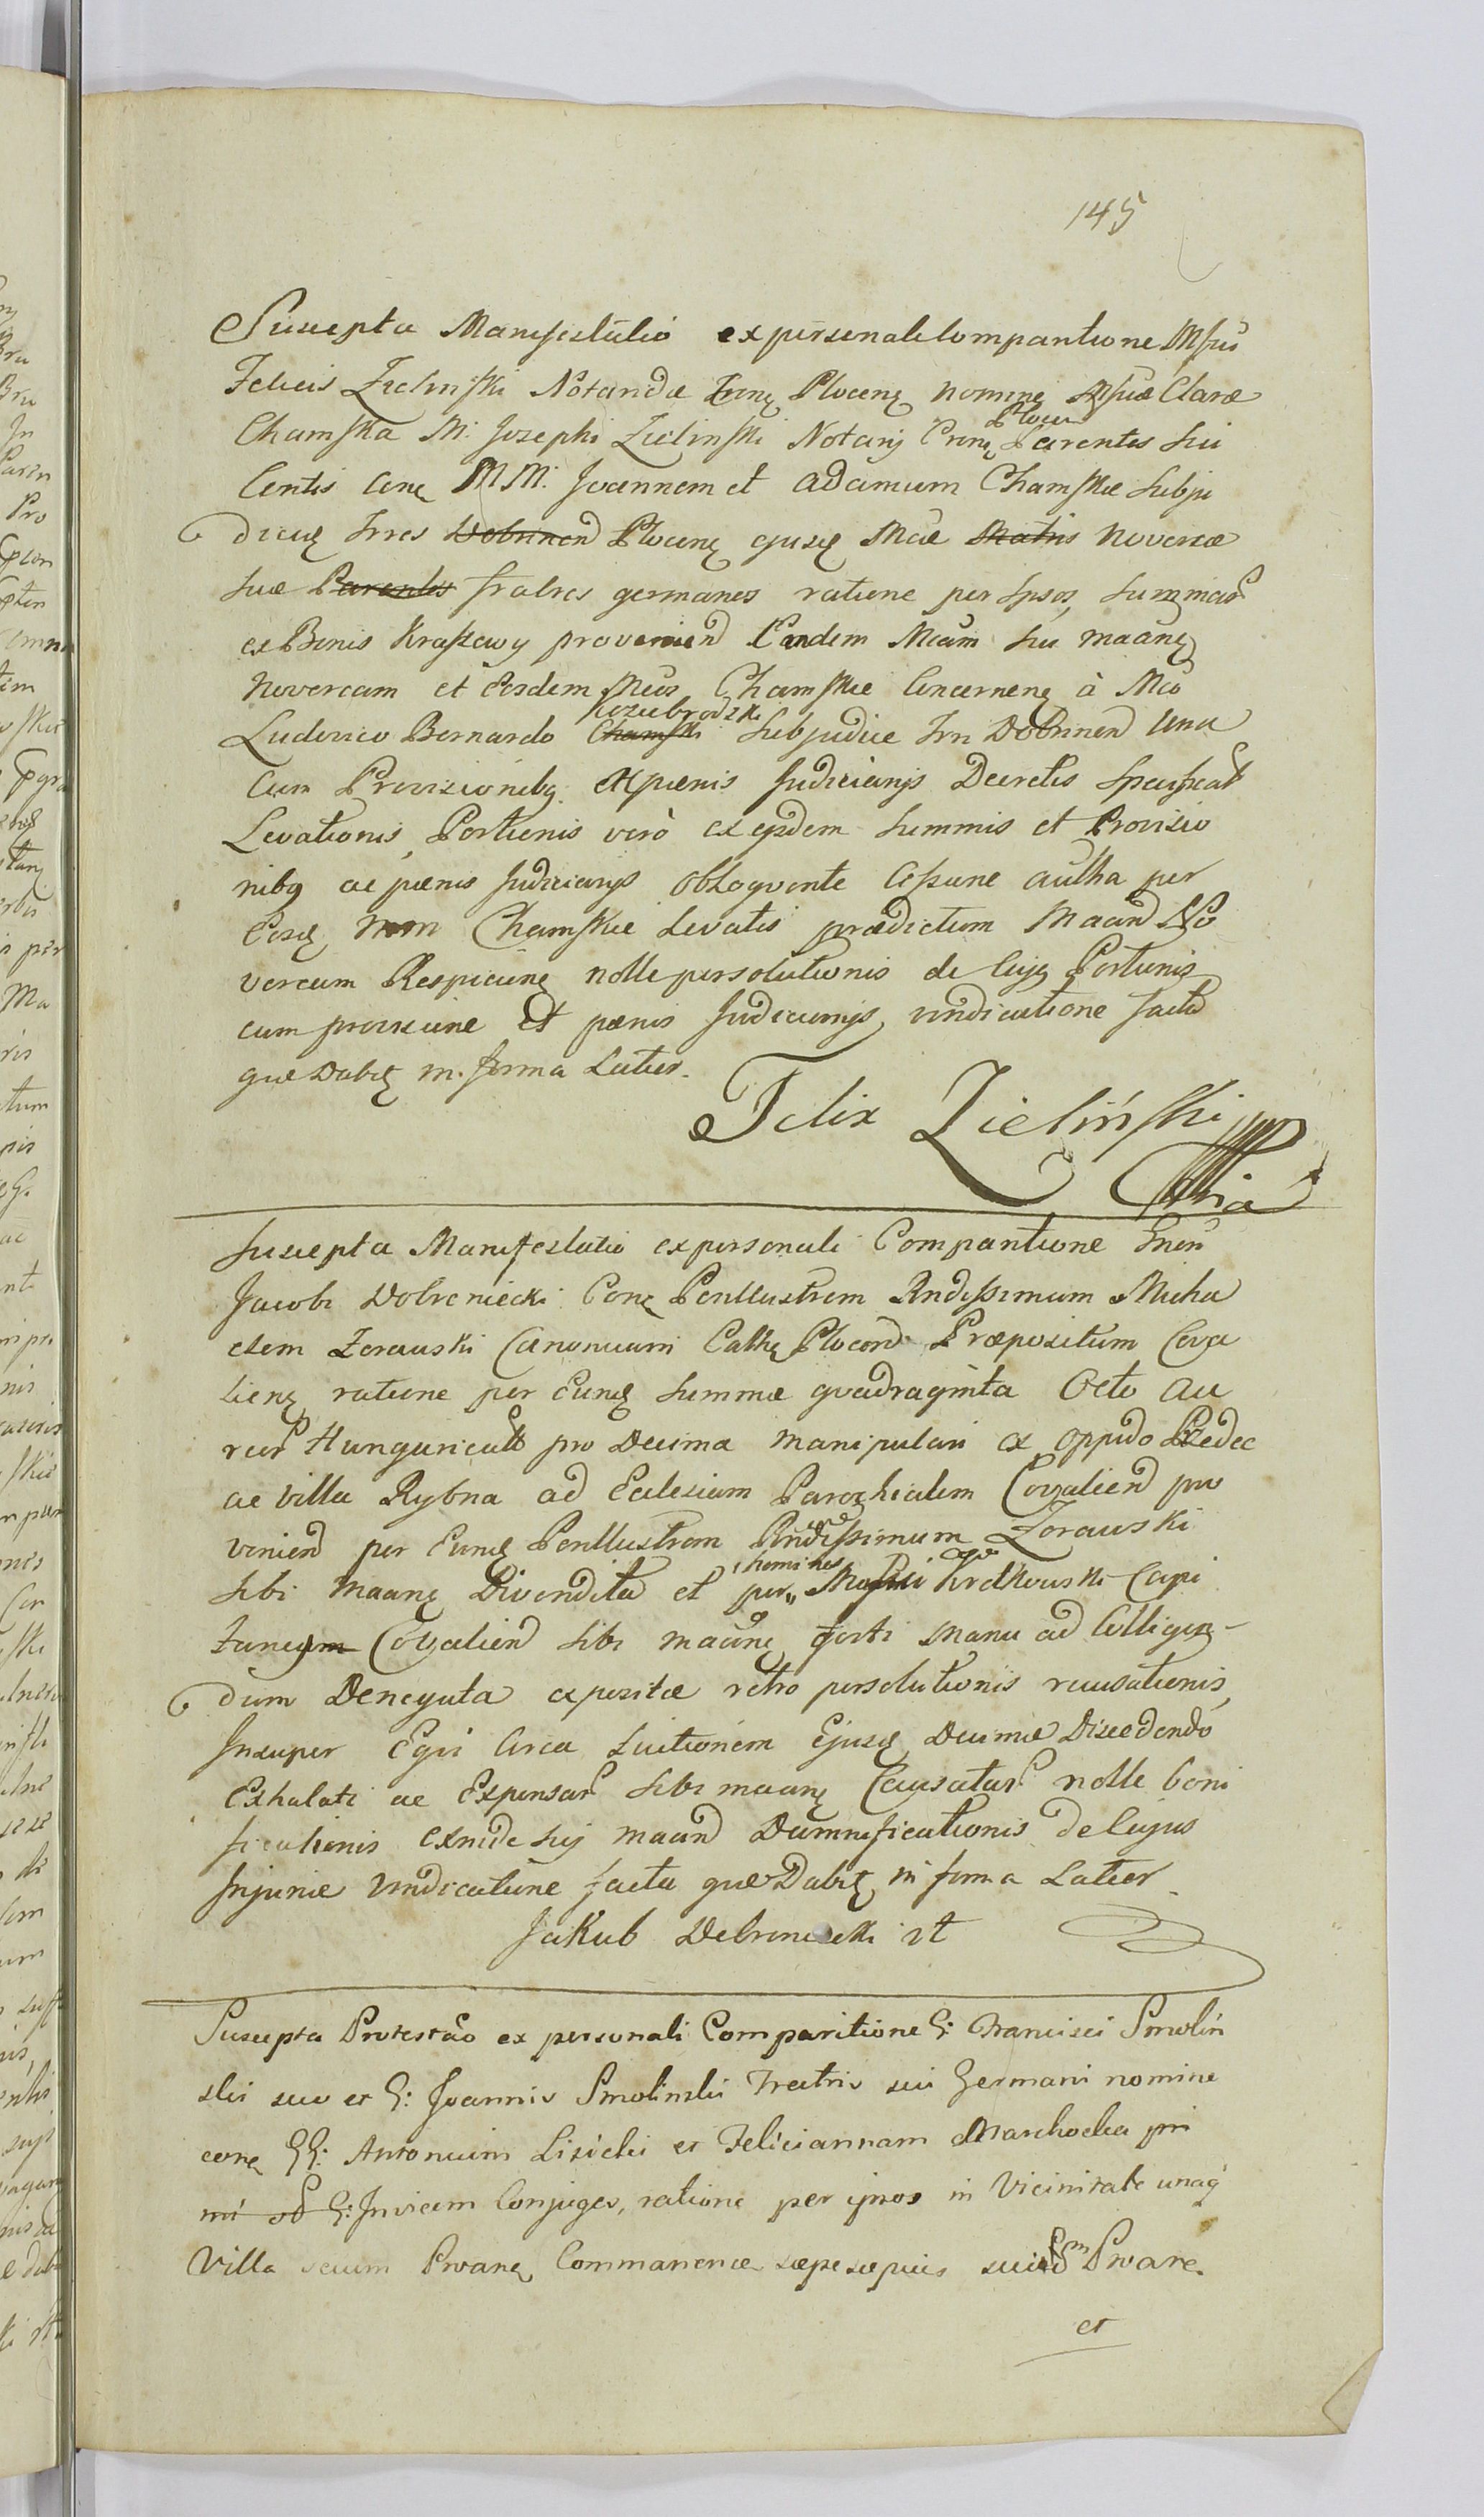 145
Suscepta Manifestatio ex personali Comparitione Mfci
Felicis Zielinski Notaridæ Trrę Plocenę nomine Mfcæ Claræ
Chamska M: Josephi Zielinski Notarij Crnę Plocen Parentis sui
Contis conę MM: Joannem et Adamum Chamskie Subju
dicuę Trres Dobrinen Plocenę ejusę Mcæ Matris Novercæ
suæ Parentis fratres germanos ratione per Ipsos summar
ex Bonis Kraszewy provenien Eandem Mcam sui maanę
Novercam et Eosdem Mcos Chamskie Concernenę à Mco
Ludovico Bernardo Chamski Koziebrodzki Subjudice Trri Dobrinen una
cum Provisionibq et pænis Judiciarijs Decretis specificat
Levationis, Portionis verò ex ejsdem summis et Provisio
nibq ac pænis Judiciarijs obloqvente Cessione aultha per
Eosę MM Chamskie Levatis prædictam Maand No
vercam Respicienę nolle persolutionis de Cujq Portionis
cum provisione et pænis Judiciarijs vindicatione facta
quæ Dabitę in forma Latior.
Felix Zieliński
Suscepta Manifestatio ex personali Comparitione Gnen
Jacobi Dobreniecki Conę Perillustrem Rndissimum Micha
elem Zorawski Canonicum Cathę Plocen Præpositum Cova
lienę ratione per Eunę summæ qvadraginta Octo Au
reor Hungaricall pro Decima manipulari ex oppido Bledec
ac villa Rybna ad Eclesiam Parochialem Covalien pro
venien per Eunę Perillustrem Rndissimum Zorawski
sibi Maanę Divendita et per homines Mafci Kretkowski Capi
taneum Covalien sibi maanę forti manu ad Colligen-
dum Denegata expositæ retro persolutionis recusationis,
Insuper Eqvi circa Luitionem Ejusę Decimæ Discedendo
Exhalati ac Expensar sibi maanę Causatar nolle boni
ficationis exinde suj maand Damnificationis de Cujus
Injuriæ vindicatione facta quæ Dabitę in forma Latior
Jakub Dobreniecki
Suscepta Protestão ex personali Comparitione G: Francisci Smolin
ski suo et G: Joannis Smolinski Fratris sui Germani nomine
conę GG: Antonium Lisicki et Feliciannam Marchocka pri
mi od G: Invicem Conjuges, ratione per ipsos in Vicinitate unaq
Villa secum Pwanę Commanenæ sæpe sæpius Pwane
et